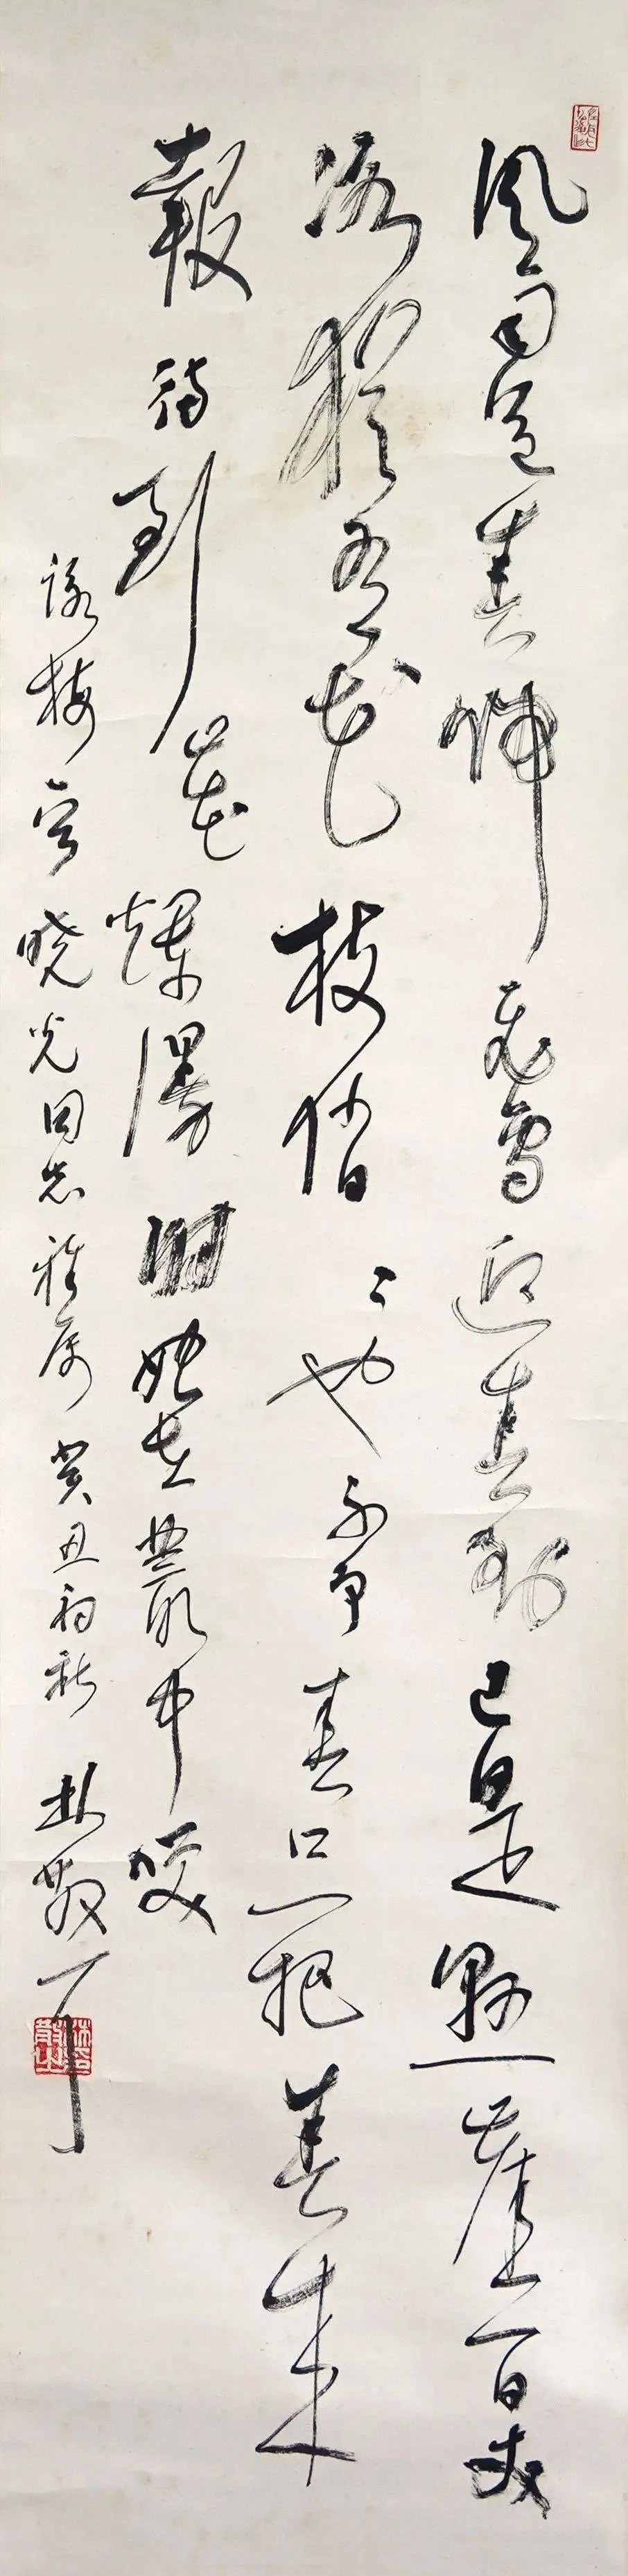 風雨送春歸飛雪迎春到已是懸崖百丈
冰猶有花枝俏〻也不争春只把春来
報待到山花爛漫时她在叢中咲
詠梅 晓光同志雅属 癸丑初秋 林散耳